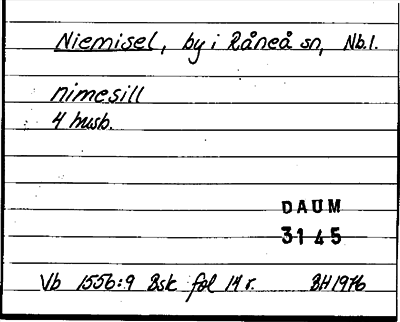 Niemisel, by i Råneå sn, Nb.l.
nimesill
4 husb.
DAUM
3145
Vb 1556:9 Bsk fol 14 r. BH1976